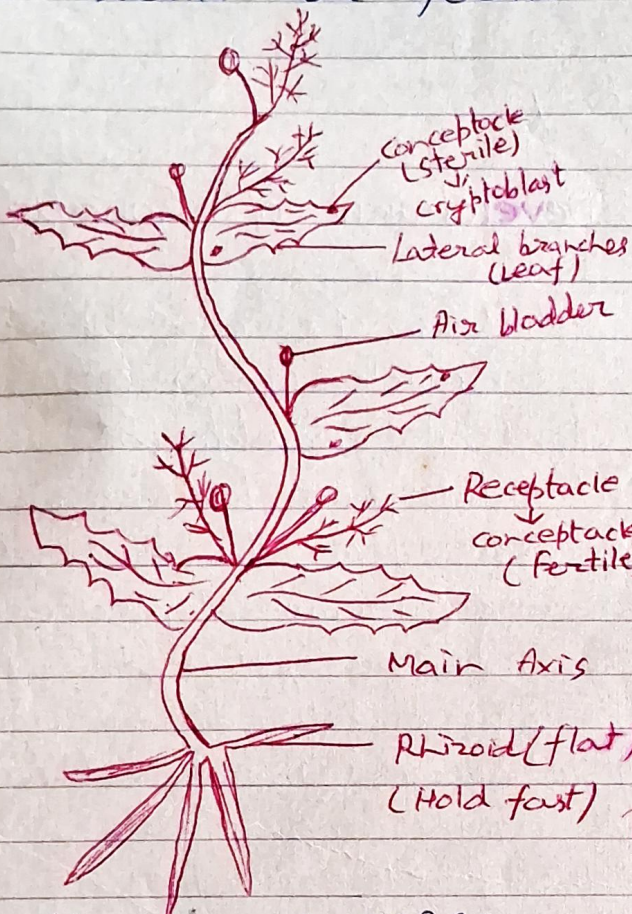 Conceptocle
(sterile)
↓
cryptoblast
Lateral branches
(Leaf)
Air bladder
Receptacle
↓
conceptack
(fertile
Main Axis
Rhizoid (flat,
(Hold fast)